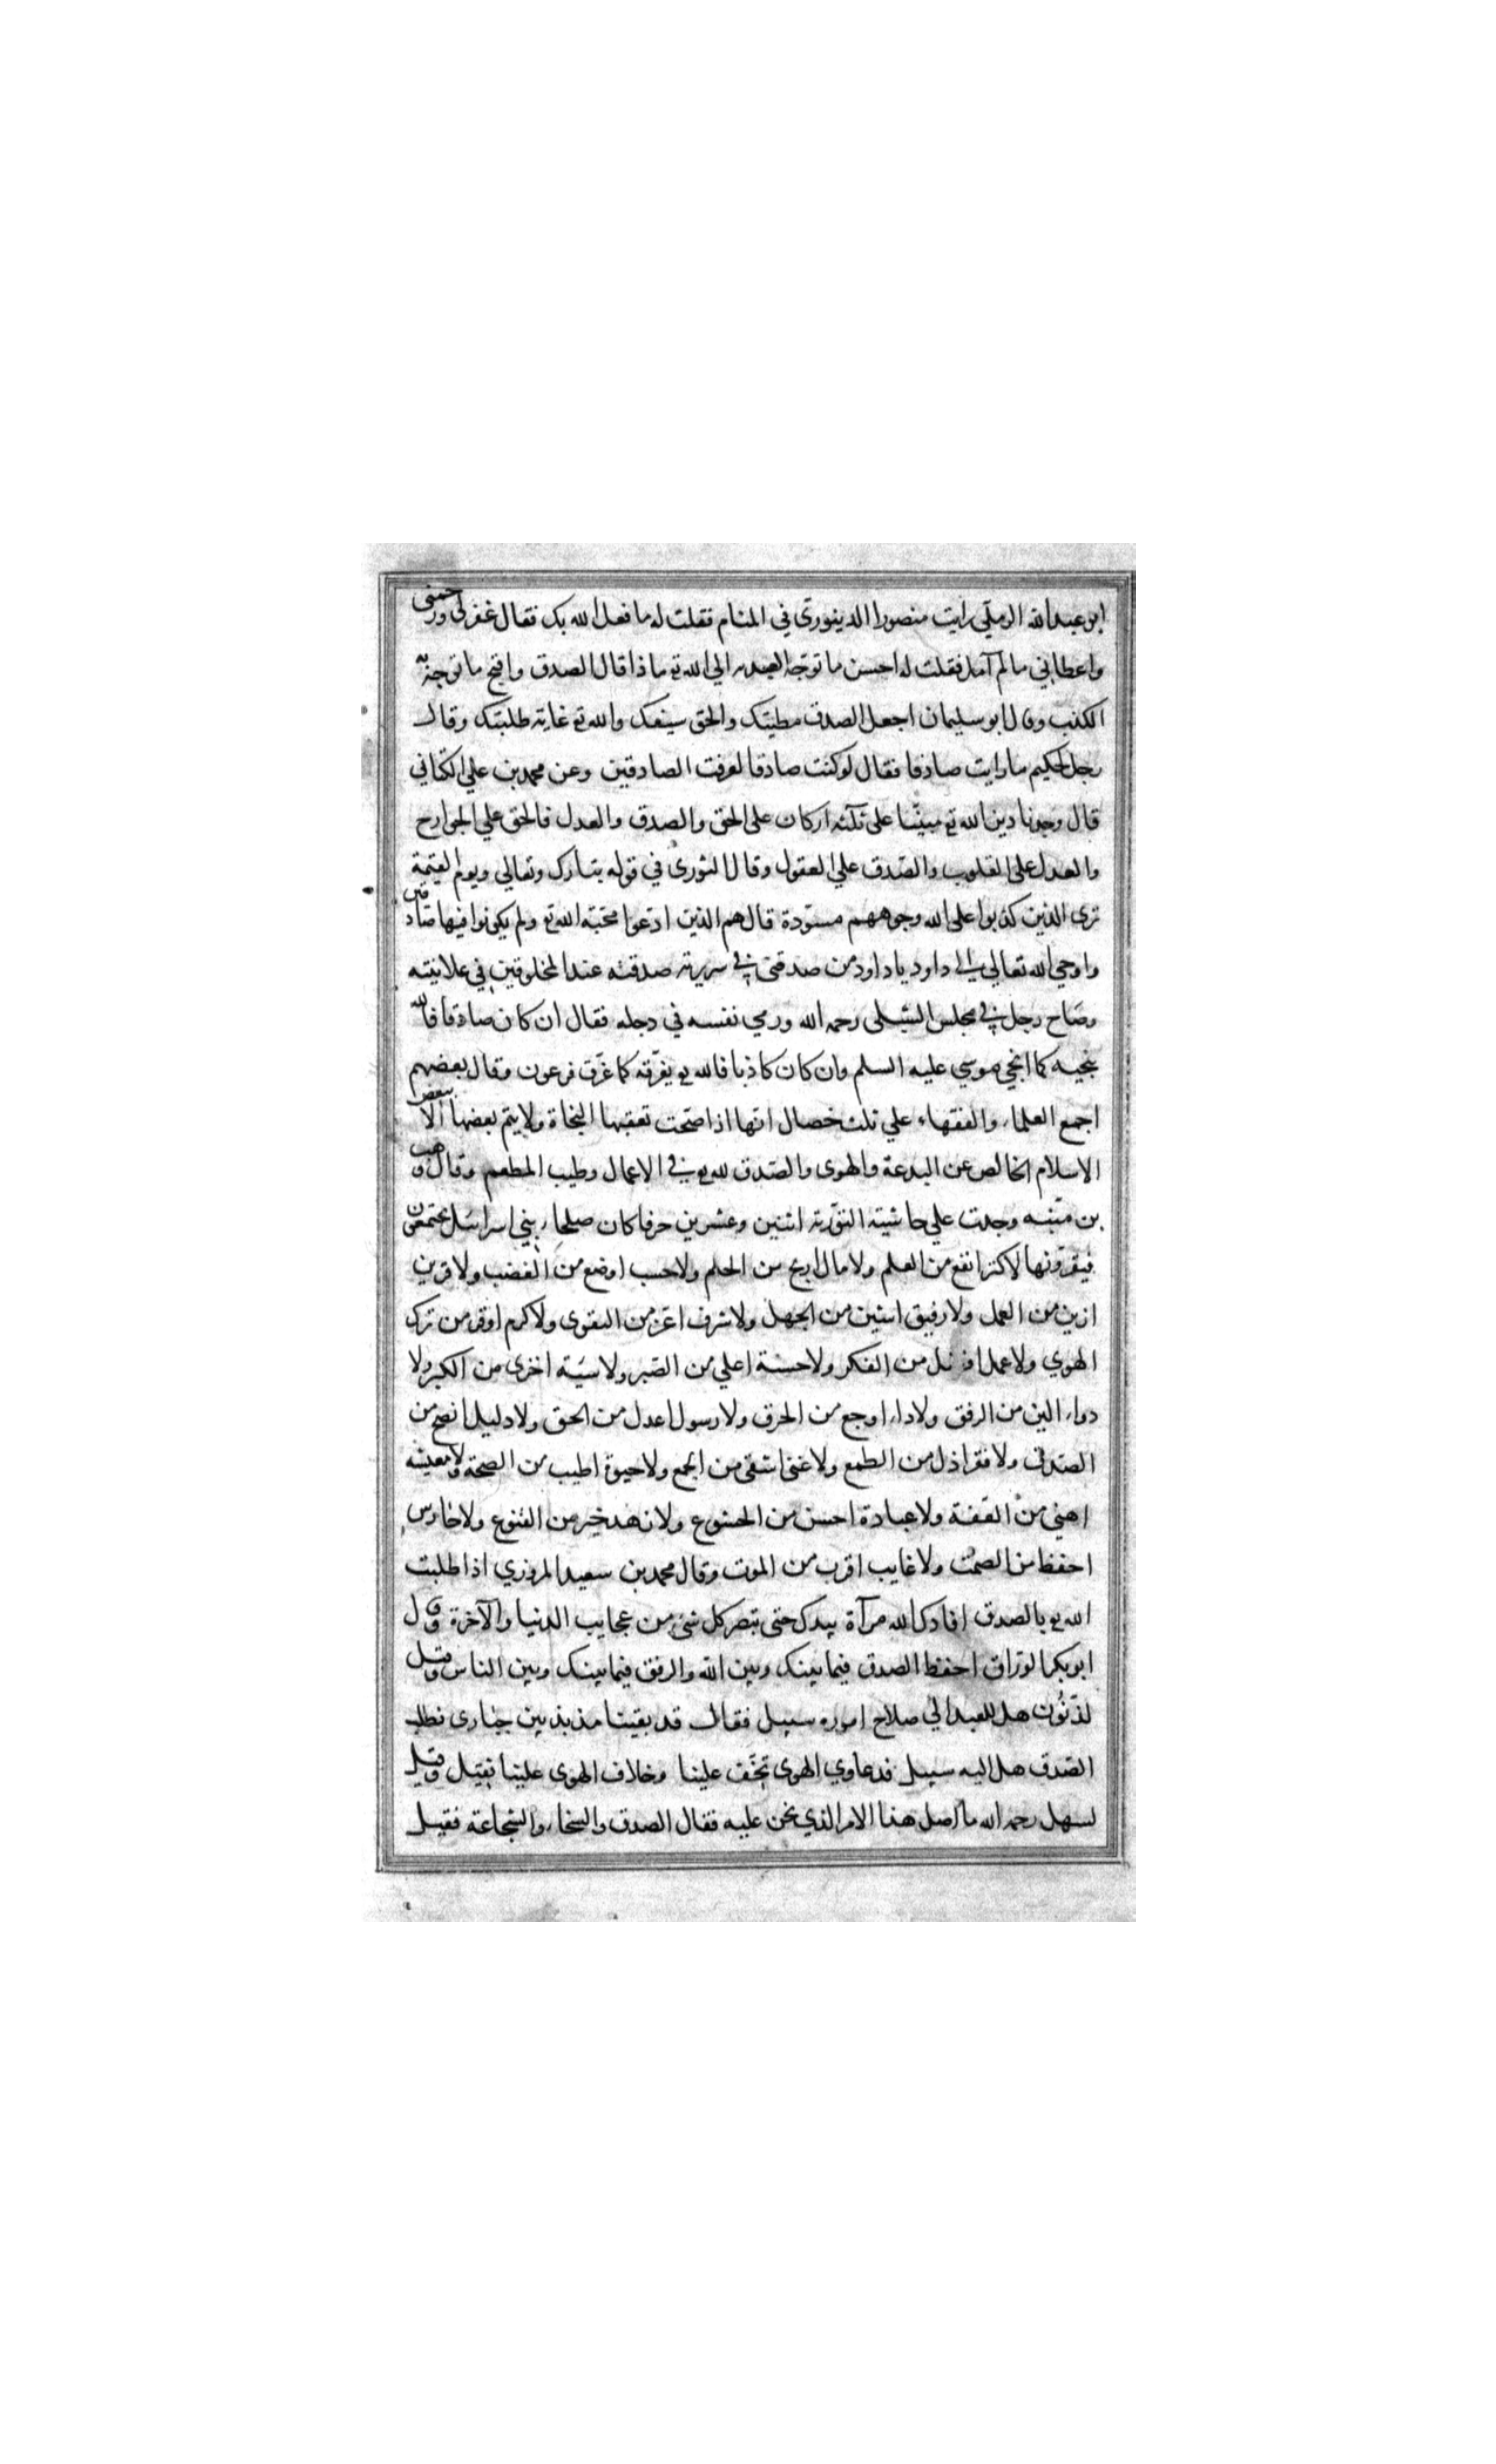 ابو عبدالله الرملي رايت منصورا الدينوري في المنام فقلت له ما فعل الله بك فقال غفر لي ورحمني
واعطاني مالم آمل فقلت له احسن ما توجه العبد به الي الله تع ماذا قال الصدق واقبح ما توجه به
الكذب وقال ابو سليمان اجعل الصدق مطيتك والحق سيفك والله تع غاية طلبتك وقال
رجل لحكيم ما رايت صادقا فقال لو كنت صادقا لعرفت الصادقين وعن محمد بن علي الكتاني
قال وجدنا دين الله تع مبنيا على ثلثة اركان على الحق والصدق والعدل فالحق علي الجوارح
والعدل على القلوب والصدق علي العقول وقال الثوري في قوله تبارك وتعالي ويوم القيمة
ترى الذين كذبوا على الله وجوههم مسودة قال هم الذين ادعوا محبة الله تع ولم يكونوا فيها صادقين
واوحي الله تعالي الي داود يا داود من صدقني في سريرته صدقته عند المخلوقين في علانيته
وصاح رجل في مجلس الشبلى رحمه الله ورمي نفسه في دجله فقال ان كان صادقا فالله
ينجيه كما انجي موسي عليه السلم وان كان كاذبا فالله تع يغرقه كما غرق فرعون وقال بعضهم
اجمع العلماء والفقهاء علي ثلث خصال انها اذا صحت تعقبها النجاة ولا يتم بعضها الا ببعض
الاسلام الخالص عن البدعة والهوى والصدق لله تع في الاعمال وطيب المطعم وقال وهب
بن منبه وجدت علي حاشية التورته اثنين وعشرين حرفا كان صلحاء بني اسرائيل يجتمعون
فيقرؤنها لا كنز انفع من العلم ولا مال اربح من الحلم ولا حسب اوضع من الغضب ولا قرين
ازين من العمل ولا رفيق اشين من الجهل ولا شرف اعز من التقوى ولا كرم اوفر من ترك
الهوي ولا عمل افضل من الفكر ولا حسنة اعلي من الصبر ولا سيئة اخزى من الكبر ولا
دواء الين من الرفق ولا داء اوجع من الخرق ولا رسول اعدل من الحق ولا دليل انصح من
الصدق ولا فقر اذل من الطمع ولا غنى اشقى من الجمع ولا حيوة اطيب من الصحة ولا معيشه
اهني من العفة ولا عبادة احسن من الخشوع ولا زهد خير من القنوع ولا حارس
احفظ من الصمت ولا غايب اقرب من الموت وقال محمد بن سعيد المروزي اذا طلبت
الله تع بالصدق افادك الله مرآة بيدك حتى تبصر كل شئ من عجايب الدنيا والآخرة وقال
ابو بكر الوراق احفظ الصدق فيما بينك وبين الله والرفق فيما بينك وبين الناس وقيل
لذنون هل للعبد الي صلاح اموره سبيل فقال قد بقينا مذبذبين حيارى نطلب
الصدق هل اليه سبيل فدعاوي الهوى تخف علينا وخلاف الهوى علينا ثقيل وقيل
لسهل رحمه الله ما اصل هذا الامر الذي نحن عليه فقال الصدق والسخاء والشجاعة فقيل